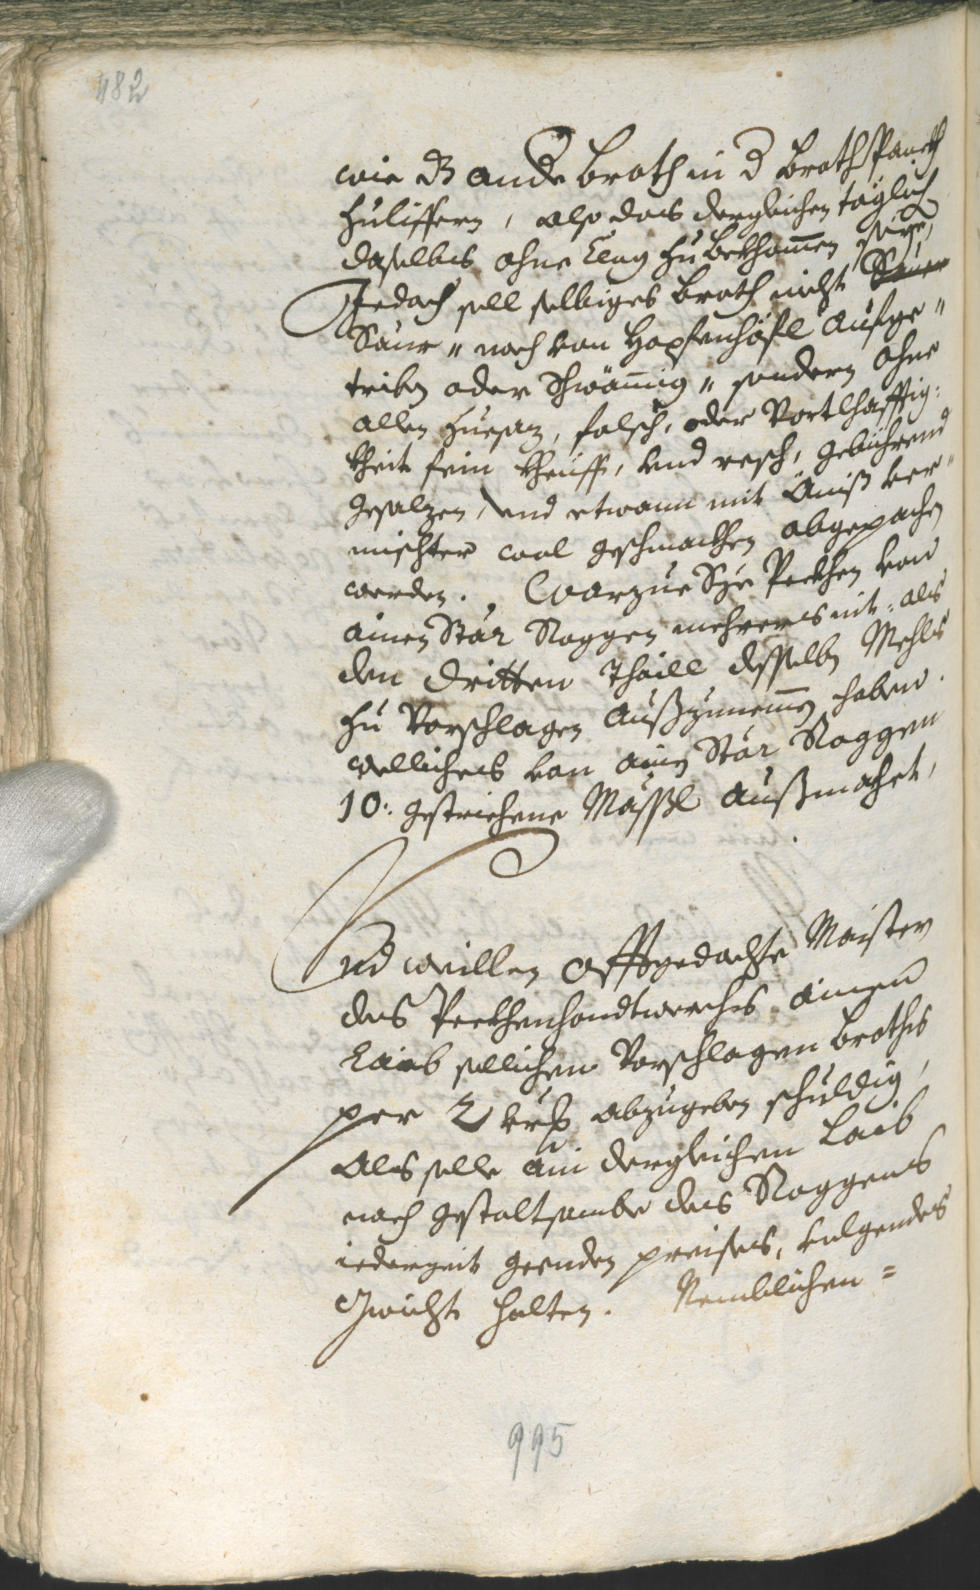 482
wie dz ander Broth in d Brothpanckh
zuliffern, also das dergleichen täglich
daselbs ohne Clag zu bekhomen seye,
Jedoch soll selbiges Broth nicht
Saur " noch von Hopfenhöfl aufge "
triben oder schwämig " sondern ohne
allen Zuesaz, falsch, oder Vortlhafftig:
kheit fein kheüff, vnd resch, gebührend
gesalzen, vnd etwann mit Äniß ver "
mischter wol geschmackhen abgepachen
werden. Warzue Sye Peckhen von
ainen Stär Roggen mehrers nit: als
den dritten Thaill desselbn Mehls
zu Vorschlagen außzunemen haben.
welliches von ainen Stär Roggen
10: gestrichene Mässl außmachet,
Vnd weillen offtgedachte Maister
des Peckhenhandtwerchs ainen
Laib sollichen Vorschlagen Broths
per 2 krz abzugeben schuldig,
Als solle ain dergleichen Laib
nach gestaltsambe des Roggens
iederzeit geenden preises, volgendes
Gwicht halten. Nemblichen =
995